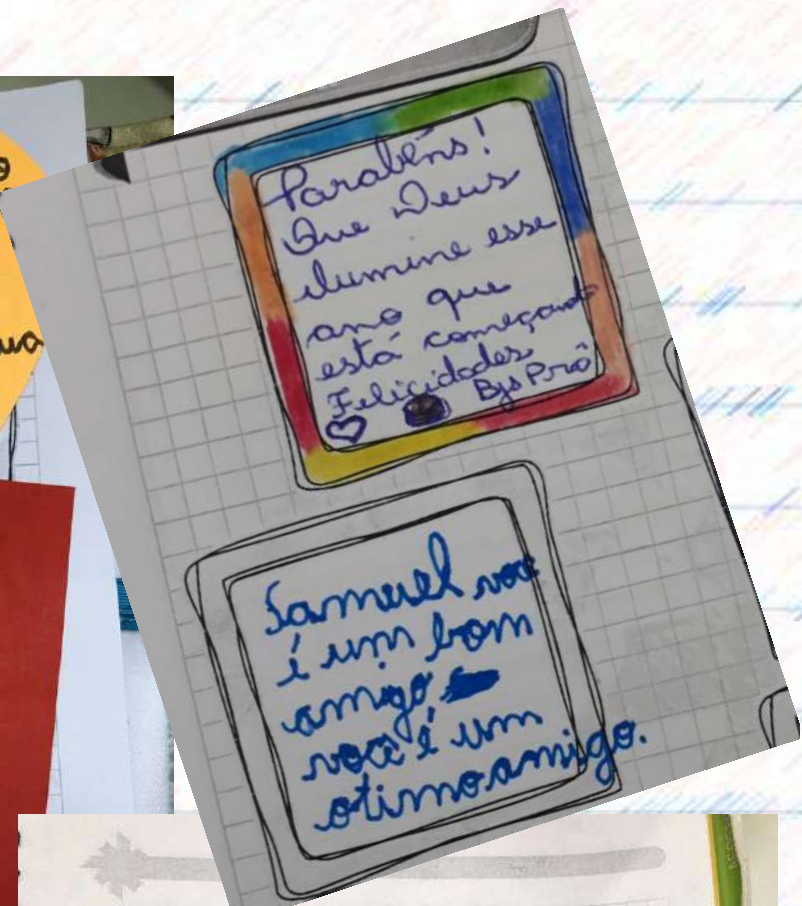 Parabéns!
Que Deus
ilumine esse
ano que
está começando
Felicidades
Bjs Prô
Samuel você
é um bom
amigo
você é um
otimo amigo.